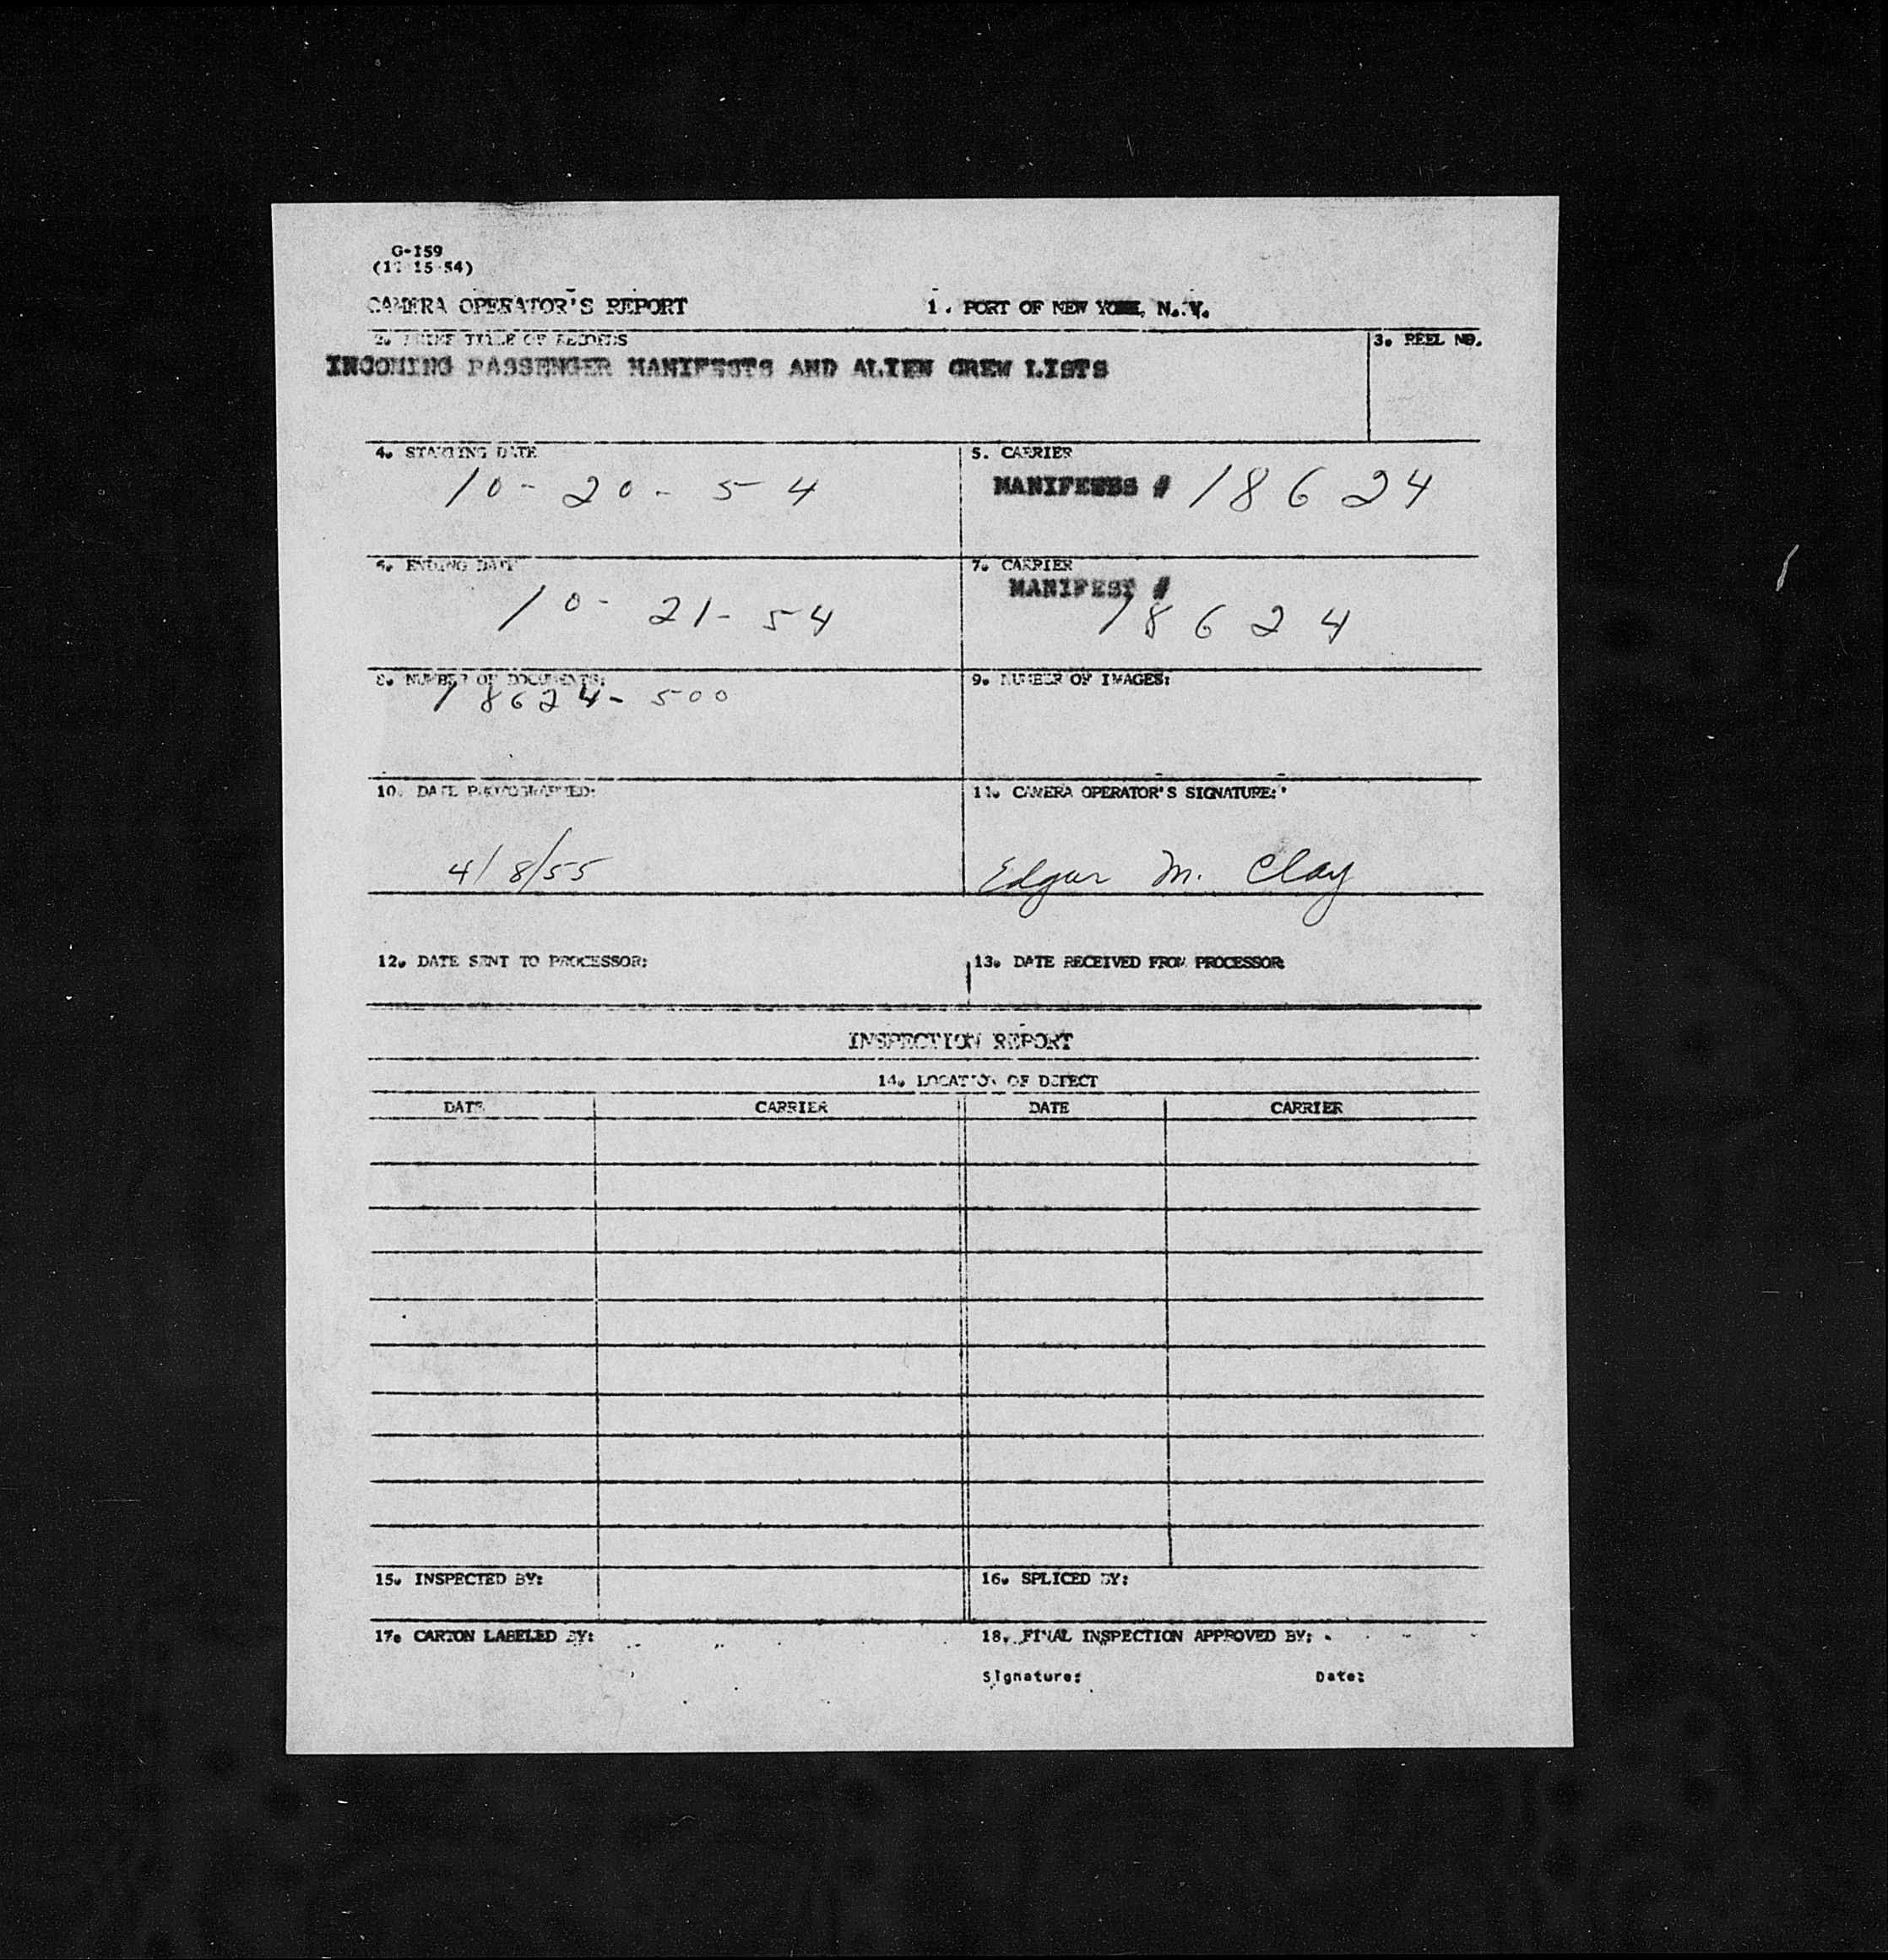 G-159
(11-15-54)
CAMERA OPERATOR'S REPORT 1. PORT OF NEW YORK, N. Y.
2. TITLE OF RECORDS 3. REEL NO.
INCOMING PASSENGER MANIFESTS AND ALIEN CREW LISTS
4. STARTING DATE 5. CARRIER
10-20-54 MANIFESTS # 18624
6. ENDING DATE 7. CARRIER
MANIFEST #
10-21-54 18624
8. NUMBER OF DOCUMENTS: 9. NUMBER OF IMAGES:
18624-500
10. DATE PHOTOGRAPHED: 11. CAMERA OPERATOR'S SIGNATURE:
4/8/55 Edgar M. Clay
12. DATE SENT TO PROCESSOR: 13. DATE RECEIVED FROM PROCESSOR
INSPECTION REPORT
14. LOCATION OF DEFECT
DATE CARRIER DATE CARRIER
15. INSPECTED BY: 16. SPLICED BY:
17. CARTON LABELED BY: 18. FINAL INSPECTION APPROVED BY:
Signature: Date: